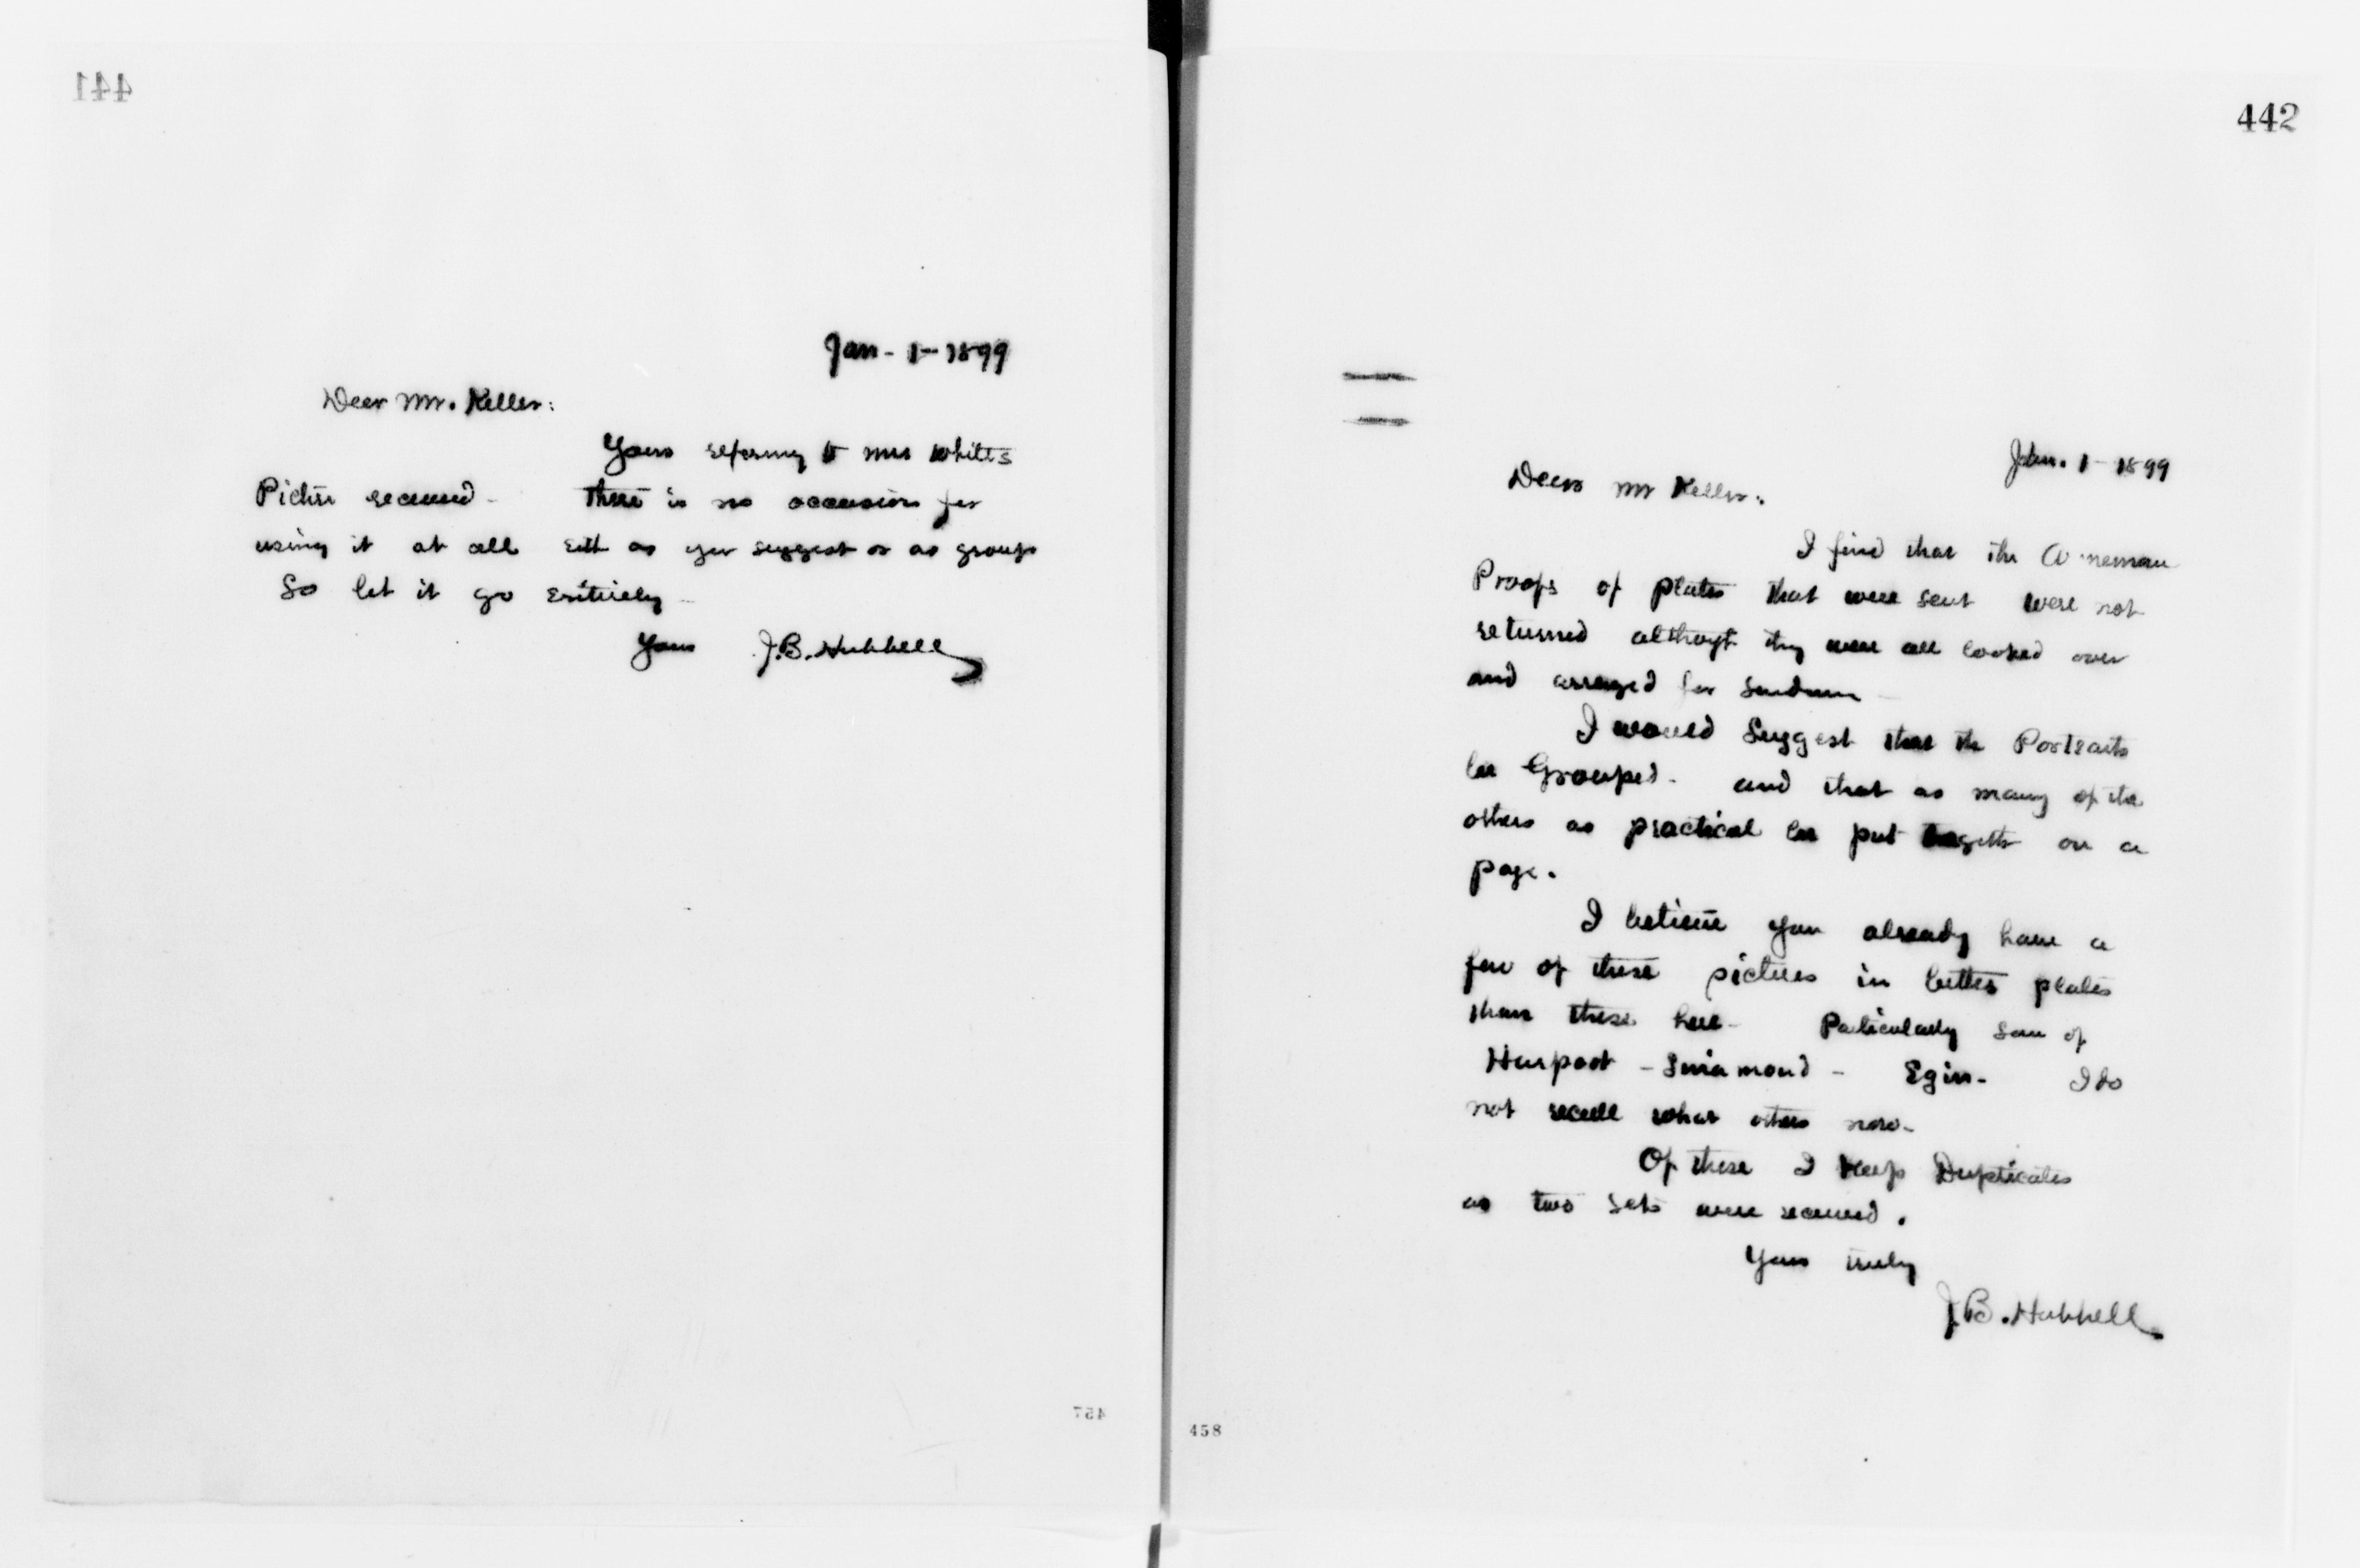 441
Jan - 1 - 1899
Dear Mr. Keller:
Yours refering to Mrs Whites
Picture received - There is no occasion for
using it at all eith as you suggest or as group
So let it go entirely -
Yours J.B. Hubbell
457
442
Jan. 1 - 1899
Dear Mr Keller:
I find that the Armenian
Proofs of plates that were sent were not
returned although they were all looked over
and arranged for
I would Suggest that the Portraits
be Grouped - and that as many of the
others as practical be put togeth on a
page.
I believe you already have a
few of these pictures in better plates
than these here - Particularly Some of
Harpoot - - Egin - I do
not recall what others now -
Of these I Keep Duplicates
as two sets were received.
Yours truly
J.B. Hubbell
458